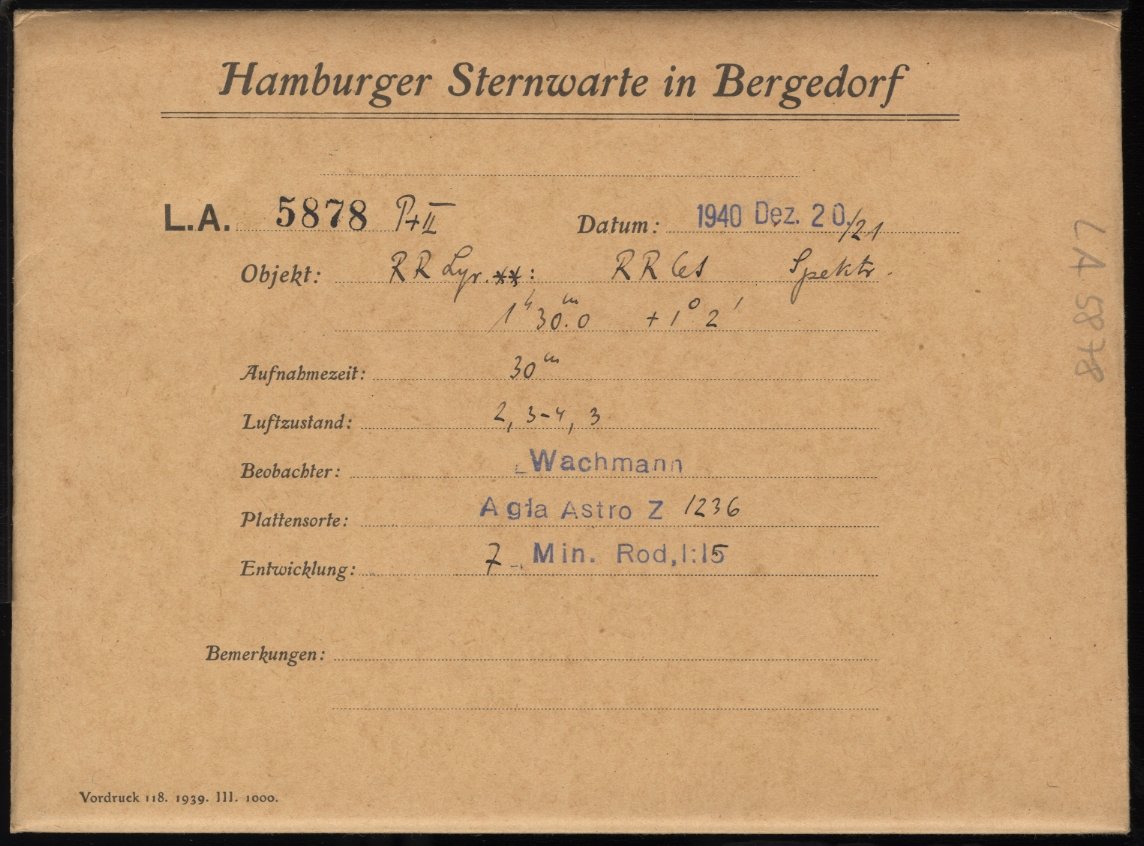 Hamburger Sternwarte in Bergedorf
L.A. 5878 P+II Datum: 1940 Dez. 20./21
Objekt: RR Lyr. **: RR Cet Spektr.
1ʰ30ᵐ.0 +1° 2'
Aufnahmezeit: 30ᵐ
Luftzustand: 2, 3-4, 3
Beobachter: Wachmann
Plattensorte: Agfa Astro Z 1236
Entwicklung: 7 Min. Rod, 1:15
Bemerkungen:
Vordruck 118. 1939. III. 1000.
LA 5878